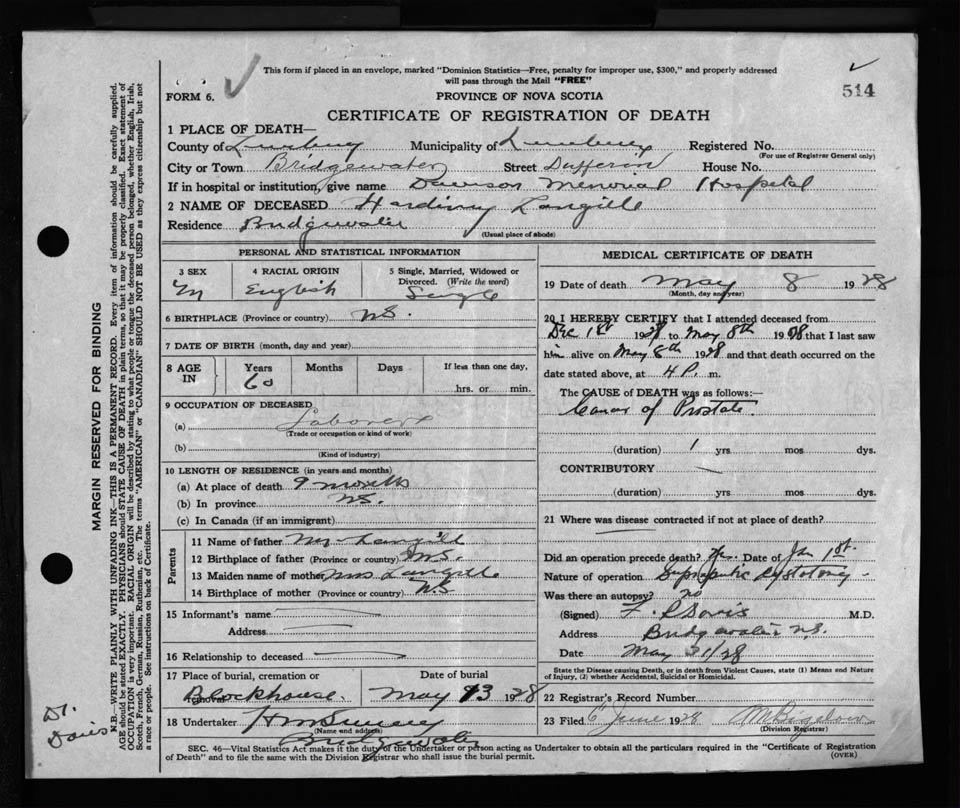 This form if placed in an envelope, marked "Dominion Statistics—Free, penalty for improper use, $300," and properly addressed
will pass through the Mail "FREE"
514
FORM 6.
PROVINCE OF NOVA SCOTIA
CERTIFICATE OF REGISTRATION OF DEATH
1 PLACE OF DEATH—
County of Lunenburg Municipality of Lunenburg Registered No.
(For use of Registrar General only)
City or Town Bridgewater Street Dufferin House No.
If in hospital or institution, give name Dawson Memorial Hospital
2 NAME OF DECEASED Harding Langille
Residence Bridgewater
(Usual place of abode)
PERSONAL AND STATISTICAL INFORMATION
3 SEX 4 RACIAL ORIGIN 5 Single, Married, Widowed or
Divorced. (Write the word)
M English Single
6 BIRTHPLACE (Province or country) N.S.
7 DATE OF BIRTH (month, day and year)
8 AGE IN Years Months Days If less than one day,
60 hrs. or min.
9 OCCUPATION OF DECEASED
(a) Laborer
(Trade or occupation or kind of work)
(b)
(Kind of industry)
10 LENGTH OF RESIDENCE (in years and months)
(a) At place of death 9 months
(b) In province N.S.
(c) In Canada (if an immigrant)
Parents
11 Name of father Mr. Langille
12 Birthplace of father (Province or country) N.S.
13 Maiden name of mother Mrs Langille
14 Birthplace of mother (Province or country) N.S
15 Informant's name
Address
16 Relationship to deceased
17 Place of burial, cremation or removal Date of burial
Blockhouse. May 13 1928
18 Undertaker
(Name and address)
Bridgewater
MEDICAL CERTIFICATE OF DEATH
19 Date of death May 8 1928
(Month, day and year)
20 I HEREBY CERTIFY that I attended deceased from
Dec 1st 192 to May 8th 1928 that I last saw
him alive on May 8th 1928 and that death occurred on the
date stated above, at 4 P. m.
The CAUSE of DEATH was as follows:
Cancer of Prostate.
(duration) 1 yrs mos dys.
CONTRIBUTORY
(duration) yrs mos dys.
21 Where was disease contracted if not at place of death?
Did an operation precede death? Yes. Date of Jan 1st.
Nature of operation Suprapubic Cystotomy
Was there an autopsy? no
(Signed) F. Davis M.D.
Address Bridgewater N.S.
Date May 31/28
State the Disease causing Death, or in death from Violent Causes, state (1) Means and Nature
of Injury, (2) whether Accidental, Suicidal or Homicidal.
22 Registrar's Record Number
23 Filed 6 June 1928 M Bigelow
(Division Registrar)
SEC. 46—Vital Statistics Act makes it the duty of the Undertaker or person acting as Undertaker to obtain all the particulars required in the "Certificate of Registration
of Death" and to file the same with the Division Registrar who shall issue the burial permit.
(OVER)
MARGIN RESERVED FOR BINDING
N.B.—WRITE PLAINLY WITH UNFADING INK—THIS IS A PERMANENT RECORD. Every item of information should be carefully supplied.
AGE should be stated EXACTLY. PHYSICIANS should STATE CAUSE OF DEATH in plain terms, so that it may be properly classified. Exact statement of
OCCUPATION is very important. RACIAL ORIGIN will be described by stating to what people or tongue the deceased person belonged, whether English, Irish,
Scotch, French, German, Russian, Ruthenian, etc. The terms "AMERICAN" or "CANADIAN" SHOULD NOT BE USED as they express citizenship but not
a race or people. See instructions on back of Certificate.
Dr.
Davis